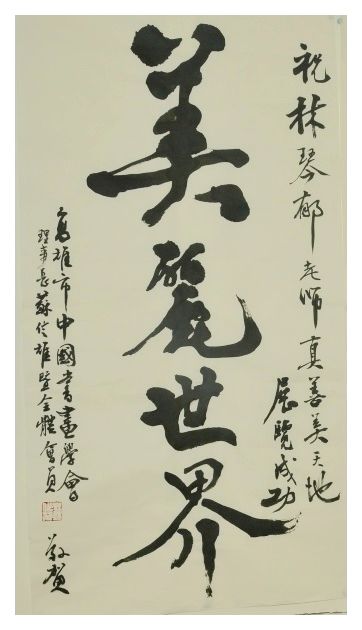 祝林琴郁老師真善美天地
展覽成功
美麗世界
高雄市中國書畫學會
理事長蘇 雄暨全體會員
敬賀